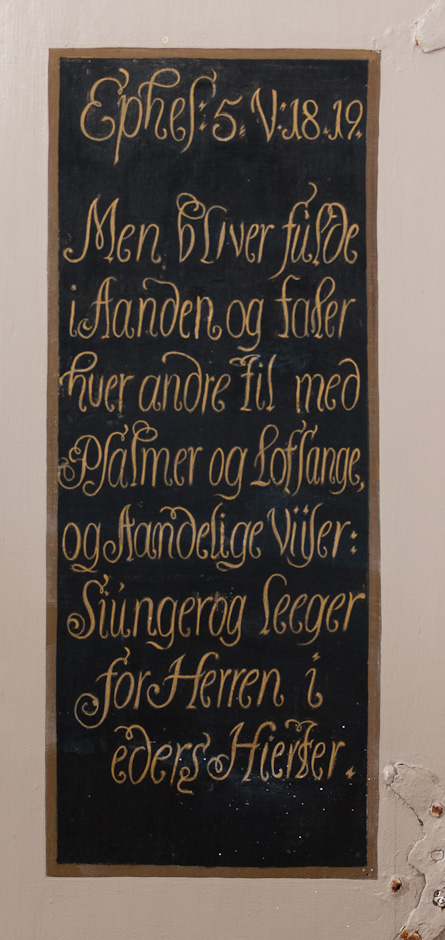 Ephes: 5. V: 18. 19.
Men bliver fulde
i Aanden og taler
hver andre til med
Psalmer og Lofsange,
og Aandelige Viiser:
Siunger og leeger
for Herren i
eders Hierter.